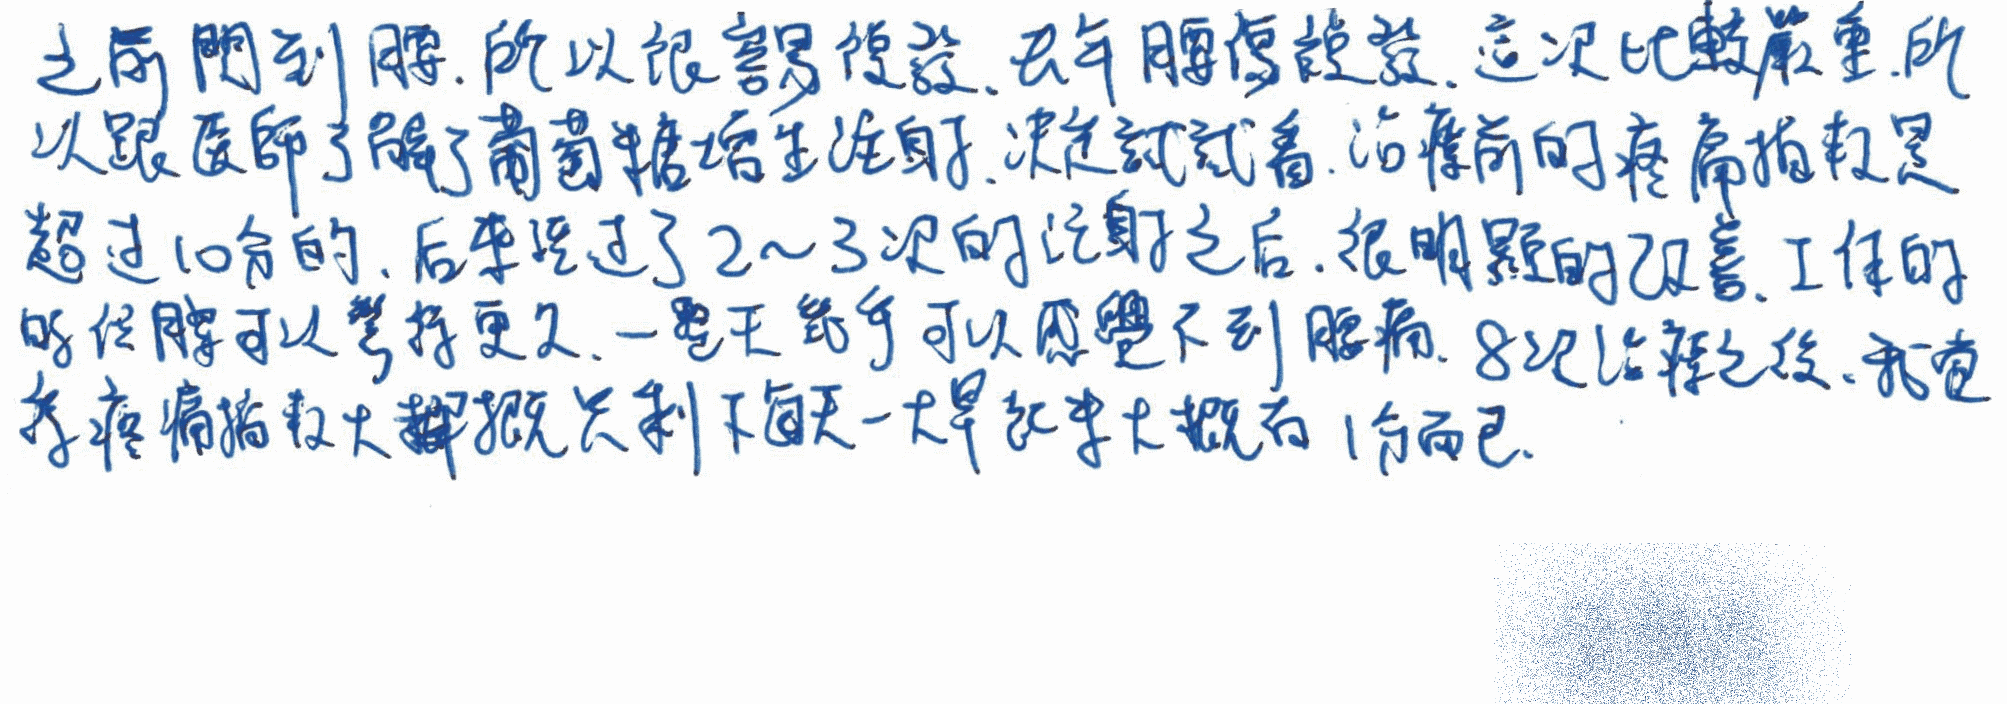 之前閃到腰.所以很容易復發.去年腰傷複發.這次比較嚴重.所
以跟医師了解了葡萄糖增生注射.決定試試看.治療前的疼痛指數是
超过10分的.后來經过了2～3次的注射之后.很明顯的改善.工作的
時候腰可以彎持更久.一整天幾乎可以感覺不到腰痛.8次治療之後.我覺
疼痛指數大概只剩下每天一大早起來大概有1分而已.